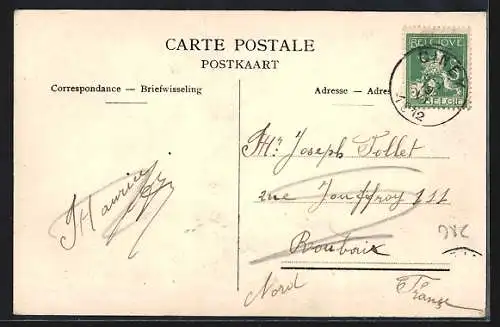 CARTE POSTALE
POSTKAART
Correspondance — Briefwisseling
Adresse — Adres
BELGIQUE
BELGIË
Mr. Joseph Pollet
rue Jouffroy 111
Roubaix
Nord
France
Maurice